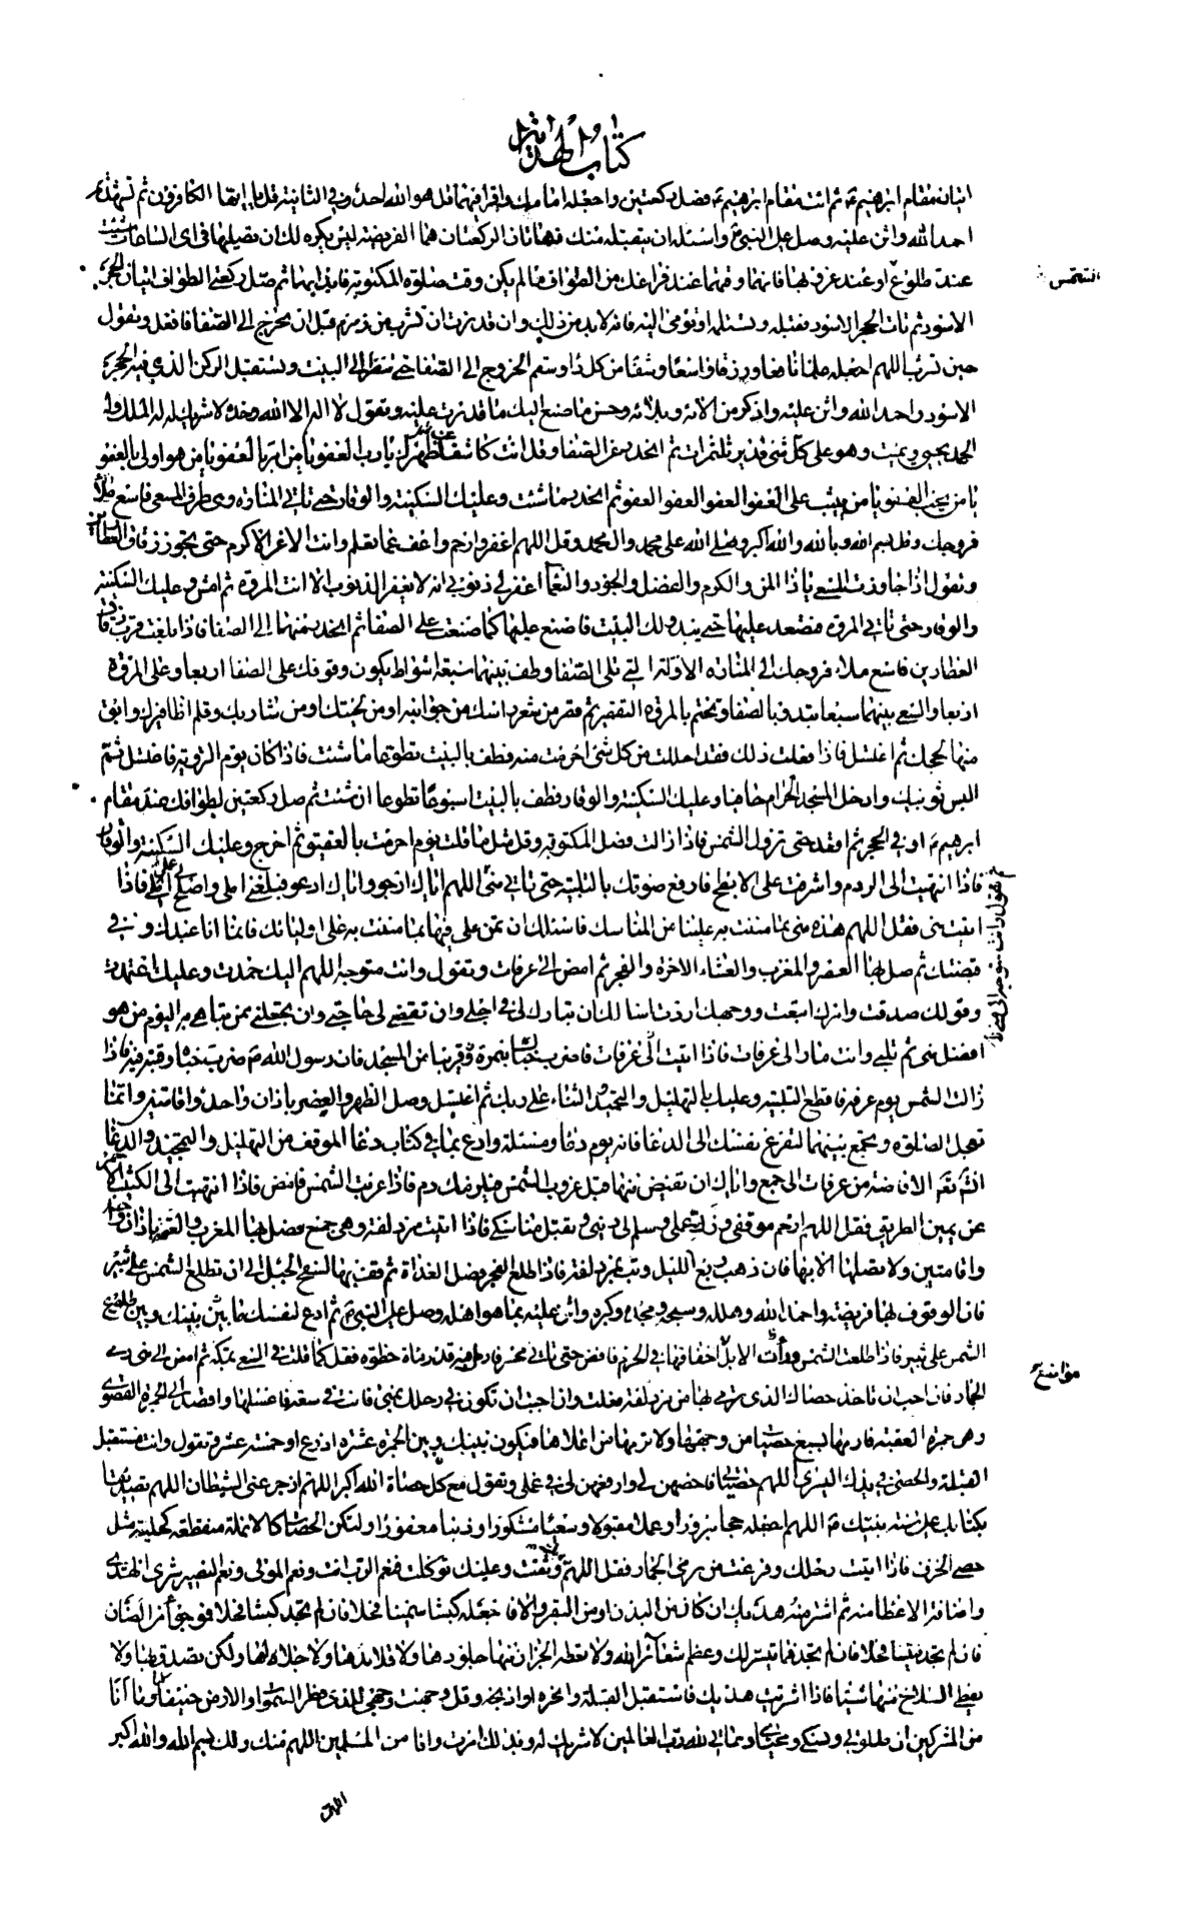 كتاب الهداية
اتيان مقام ابرهيم ع ثم ائت مقام ابرهيم ع فصل ركعتين واجعله امامك واقرا فيهما قل هو الله احد وفي الثانية قل يا ايها الكافرون ثم تشهد ثم
احمد الله واثن عليه وصل على النبي ص واسئله ان يتقبله منك فهاتان الركعتان هما الفريضة ليس يكره لك ان تصليهما في اى الساعات شئت
عند طلوع او عند غروبها فانما وقتهما عند فراغك من الطواف ما لم يكن وقت صلوة المكتوبة فابدا بها ثم صل ركعتي الطواف اتيان الحجر
الشمس
الاسود ثم تات الحجر الاسود فتقبله وتستلمه او تومى اليه فانه لا بد من ذلك وان قدرت ان تشرب من زمزم قبل ان تخرج الى الصفا فافعل وتقول
حين تشرب اللهم اجعله علما نافعا ورزقا واسعا وشفا من كل دا وسقم الخروج الى الصفا حتى تنظر الى البيت وتستقبل الركن الذي فيه الحجر
الاسود واحمد الله واثن عليه واذكر من الائه وبلائه وحسن ما صنع اليك ما قدرت عليه وتقول لا اله الا الله وحده لا شريك له له الملك وله
الحمد يحيي ويميت وهو على كل شئ قدير ثلث مرات ثم انحدر عن الصفا وقل انت كاشف عن ظهرك يا رب العفو يا من امر بالعفو يا من هو اولى بالعفو
يا من يحب العفو يا من يثيب على العفو العفو العفو العفو ثم انحدر ما شئت وعليك السكينة والوقار حتى تاتي المنارة وهي طرف المسعى فاسع ملأ
فروجك وقل بسم الله وبالله والله اكبر وصلى الله على محمد وال محمد وقل اللهم اغفر وارحم واعف عما تعلم وانت الاعز الاكرم حتى تجوز زقاق العطارين
وتقول اذا جاوزت المسعى يا ذا المن والكرم والفضل والجود والنعما اغفر لي ذنوبي انه لا يغفر الذنوب الا انت المروة ثم امش وعليك السكينة
والوقار حتى تاتي المروة فتصعد عليها حتى يبدو لك البيت فاصنع عليها كما صنعت على الصفا ثم انحدر منها الى الصفا فاذا بلغت قرب زقاق
العطارين فاسع ملاء فروجك الى المنارة الاولة التي تلى الصفا وطف بينهما سبعة اشواط يكون وقوفك على الصفا اربعا وعلى المروة
اربعا والسعي بينهما سبعا تبدء بالصفا وتختم بالمروة التقصير ثم قصر من شعر راسك من جوانبه او من لحيتك ومن شاربك وقلم اظافيرك وابق
منها لحجك ثم اغتسل فاذا فعلت ذلك فقد احللت من كل شئ احرمت منه فطف بالبيت تطوعا ما شئت فاذا كان يوم التروية فاغتسل ثم
البس ثوبيك وادخل المسجد الحرام حافيا وعليك السكينة والوقار فطف بالبيت اسبوعا تطوعا ان شئت ثم صل ركعتين لطوافك عند مقام
ابرهيم ع او في الحجر ثم اقعد حتى تزول الشمس فاذا زالت فصل المكتوبة وقل مثل ما قلت يوم احرمت بالعقيق ثم اخرج وعليك السكينة والوقار
فاذا انتهيت الى الردم واشرفت على الابطح فارفع صوتك بالتلبية حتى تاتي منى اللهم اياك ارجو واياك ادعو فبلغني املى واصلح عملي فاذا
ثم تقول وانت متوجه الى منى
اتيت منى فقل اللهم هذه منى مما مننت به علينا من المناسك فاسئلك ان تمن على فيها بما مننت به على اوليائك فانما انا عبدك وفي
قبضتك ثم صل بها العصر والمغرب والعشاء الاخرة والفجر ثم امض الى عرفات وتقول وانت متوجه اللهم اليك صمدت وعليك اعتمدت
وقولك صدقت وامرك اتبعت ووجهك اردت اسالك ان تبارك لي في اجلى وان تقضي لي حاجتي وان تجعلني ممن تباهي به اليوم من هو
افضل مني ثم تلبي وانت مار الى عرفات فاذا اتيت الى عرفات فاضرب خباك بنمرة قريبا من المسجد فان رسول الله ص ضرب خباه وقبته فيه فاذا
زالت الشمس يوم عرفة فاقطع التلبية وعليك بالتهليل والتحميد والثناء على ربك ثم اغتسل وصل الظهر والعصر باذان واحد واقامتين وانما
تعجل الصلوة وتجمع بينهما لتفرغ نفسك الى الدعا فانه يوم دعا ومسئلة وادع بما في كتاب دعا الموقف من التهليل والتمجيد والدعا
الافاضة من عرفات الى جمع واياك ان تفيض منها قبل غروب الشمس فيلزمك دم فاذا غربت الشمس فامض فاذا انتهيت الى الكثيب الاحمر
عن يمين الطريق فقل اللهم ارحم موقفي وزك عملى وسلم لي ديني وتقبل مناسكي فاذا اتيت مزدلفة وهي جمع فصل بها المغرب والعتمة باذان واحد
واقامتين ولا تصلهما الا بها فان ذهب ربع الليل وبت بمزدلفة فاذا طلع الفجر فصل الغداة ثم قف بها لسفح الجبل الى ان تطلع الشمس على ثبير
فان الوقوف بها فريضة واحمد الله وهلله وسبحه ومجده وكبره واثن عليه بما هو اهله وصل على النبي ص ثم ادع لنفسك ما بينك وبين طلوع
الشمس على ثبير فاذا طلعت الشمس ورأت الابل اخفافها في الحرم فامض حتى تاتي وادي محسر فارمل فيه قدر مائة خطوة فقل كما قلت في السعي بمكة ثم امض الى منى ورمى
مواضع
الجمار فان احببت ان تاخذ حصاك الذي ترمي بها من مزدلفة فعلت وان احببت ان تكون في رحلك بمنى فانت في سعة فاغسلها واقصد الى الجمرة القصوى
وهي جمرة العقبة فارمها بسبع حصيات من وجهها ولا ترمها من اعلاها فيكون بينك وبين الجمرة عشرة اذرع او خمسة عشر وتقول وانت مستقبل
القبلة والحصى في يدك اليسرى اللهم حصياتي فاحصهن لي وارفعهن لي في عملي وتقول مع كل حصاة الله اكبر اللهم ازجر عني الشيطان اللهم تصديقا
بكتابك على سنة نبيك ص اللهم اجعله حجا مبرورا وعملا مقبولا وسعيا مشكورا وذنبا مغفورا ولتكن الحصاة كالانملة منقطة كحلية مثل
حصى الخزف فاذا اتيت رحلك وفرغت من رمى الجمار فقل اللهم بك وثقت وعليك توكلت فنعم الرب انت ونعم المولى ونعم النصير شرى الهدي
ثم اشتر منه هديك ان كان من البدن او من البقر والا فاجعله كبشا سمينا فحلا فان لم تجد كبشا فحلا فموجئ من الضان
فان لم تجد فتيسا فحلا فان لم تجد فما تيسر لك وعظم شعائر الله ولا تعط الجزار منها جلودها ولا قلائدها ولا جلالها ولكن تصدق بها ولا
تعط السلاخ منها شيئا فاذا اشتريت هديك فاستقبل القبلة وانحره او اذبحه وقل وجهت وجهي للذي فطر السموات والارض حنيفا مسلما وما انا
من المشركين ان صلوتي ونسكي ومحياي ومماتي لله رب العالمين لا شريك له وبذلك امرت وانا من المسلمين اللهم منك ولك بسم الله والله اكبر
اللهم